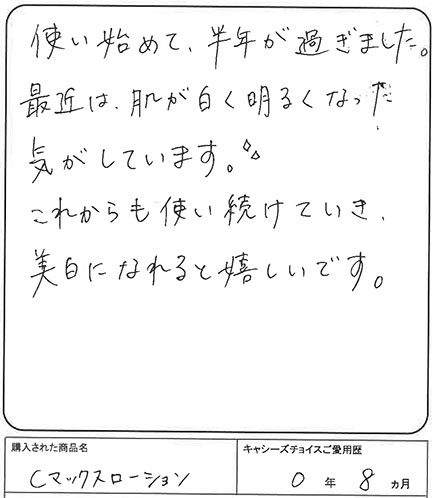 使い始めて、半年が過ぎました。
最近は、肌が白く明るくなった
気がしています。
これからも使い続けていき、
美白になれると嬉しいです。
購入された商品名
キャシーズチョイスご愛用歴
Cマックスローション
0年8ヵ月